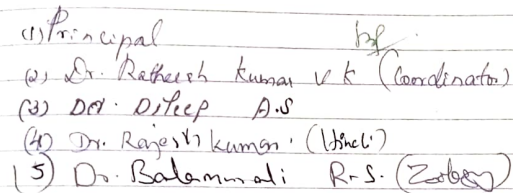 (1) Principal
(2) Dr. Ratheesh Kumar V K (Coordinator)
(3) Dr. Dileep A.S
(4) Dr. Rajesh Kumar. (Hindi)
(5) Dr. Balamurali R.S. (Zoology)